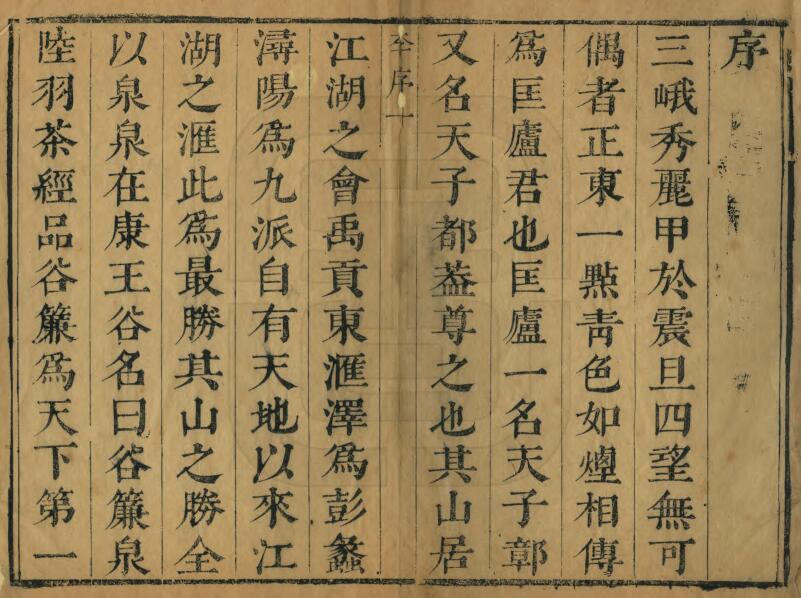 序
三峨秀麗甲於震旦四望無可
偶者正東一點靑色如煙相傳
爲匡廬君也匡廬一名天子鄣
又名天子都葢尊之也其山居
序一
江湖之會禹貢東滙澤爲彭蠡
潯陽爲九派自有天地以來江
湖之滙此爲最勝其山之勝全
以泉泉在康王谷名曰谷簾泉
陸羽茶經品谷簾爲天下第一